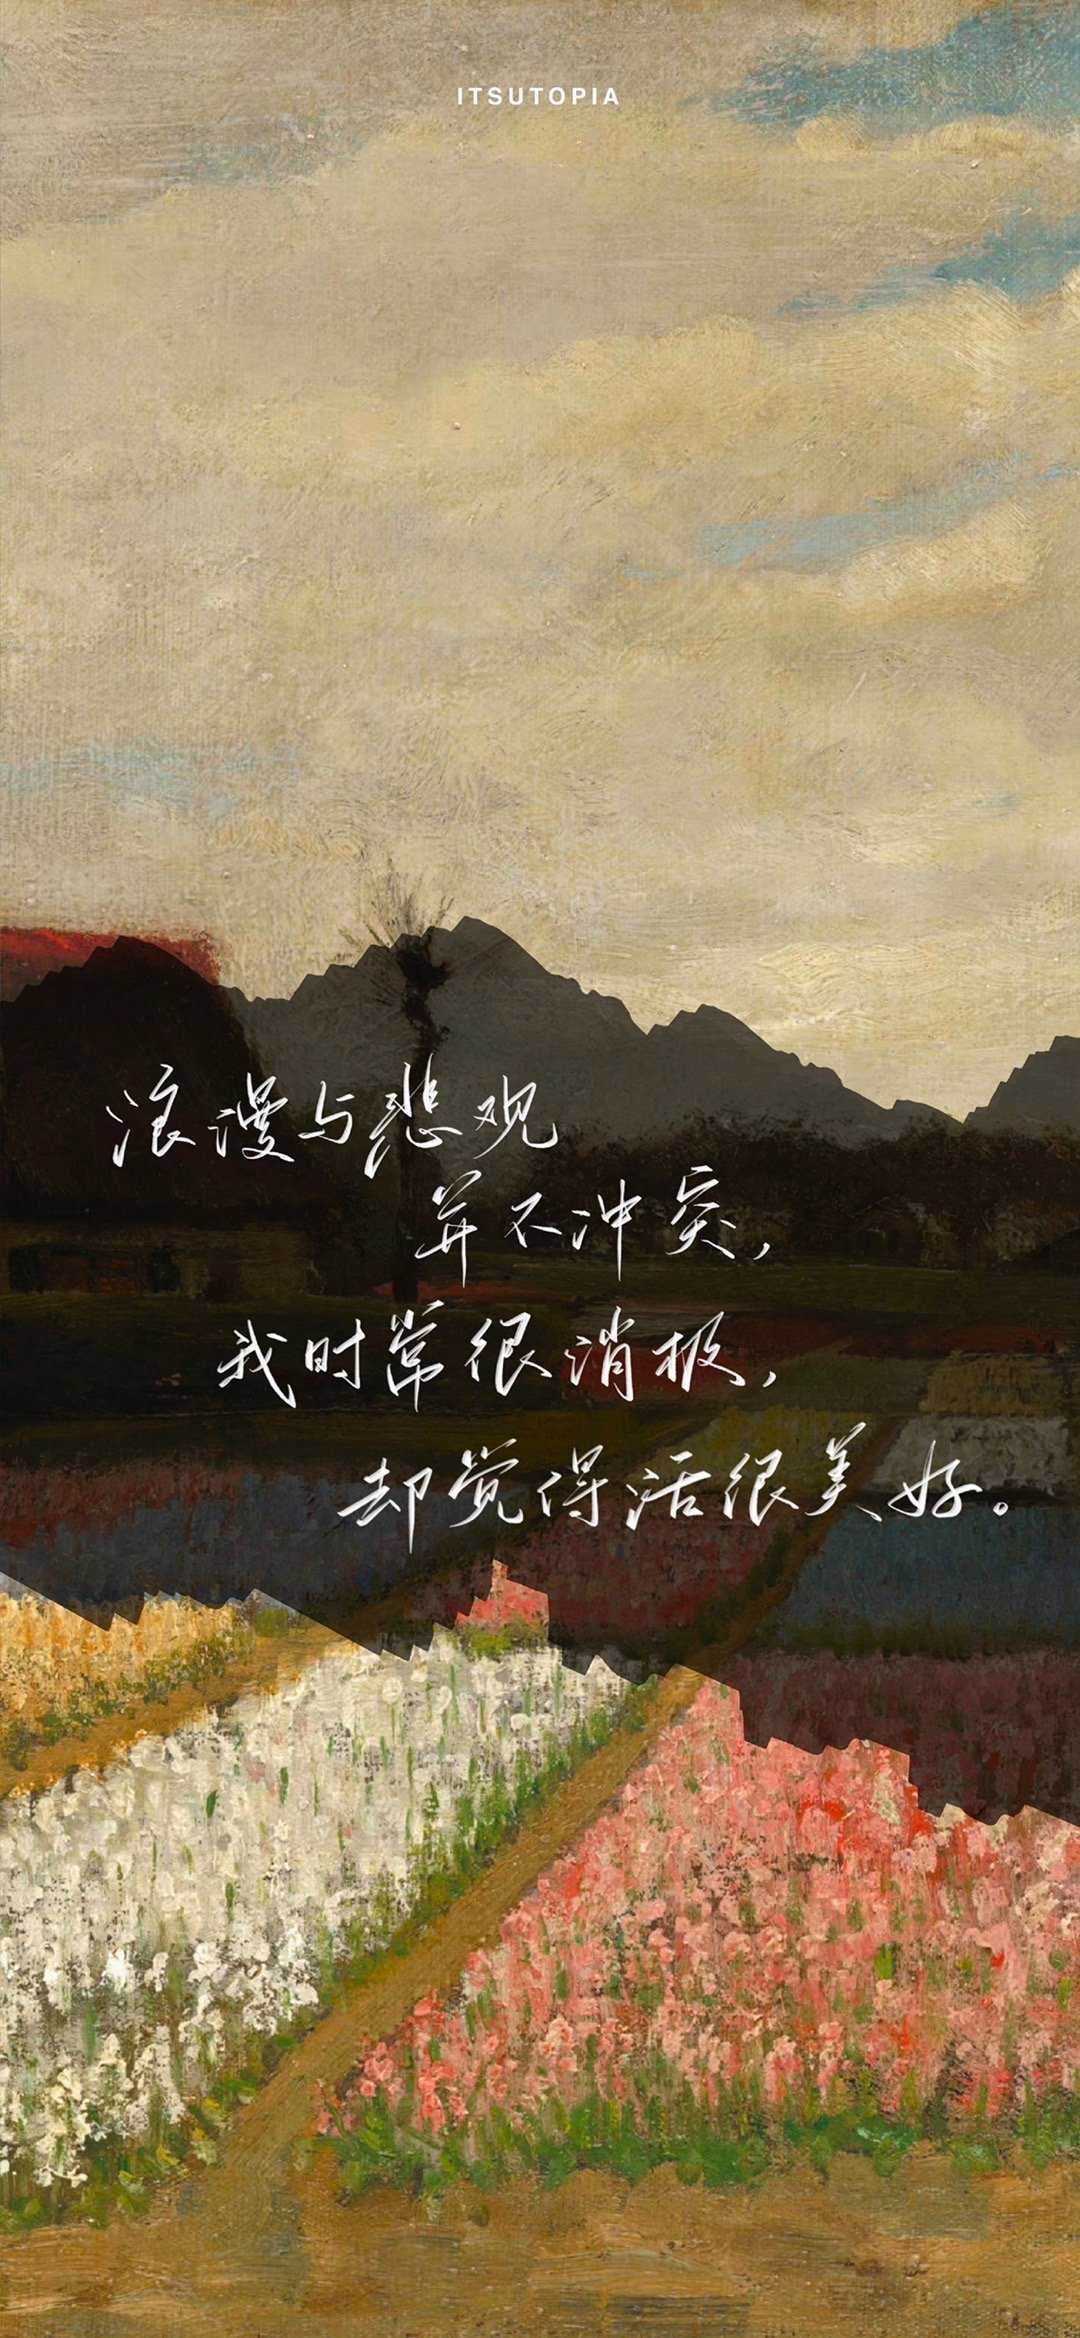 ITSUTOPIA
浪漫与悲观
并不冲突，
我时常很消极，
却觉得活很美好。